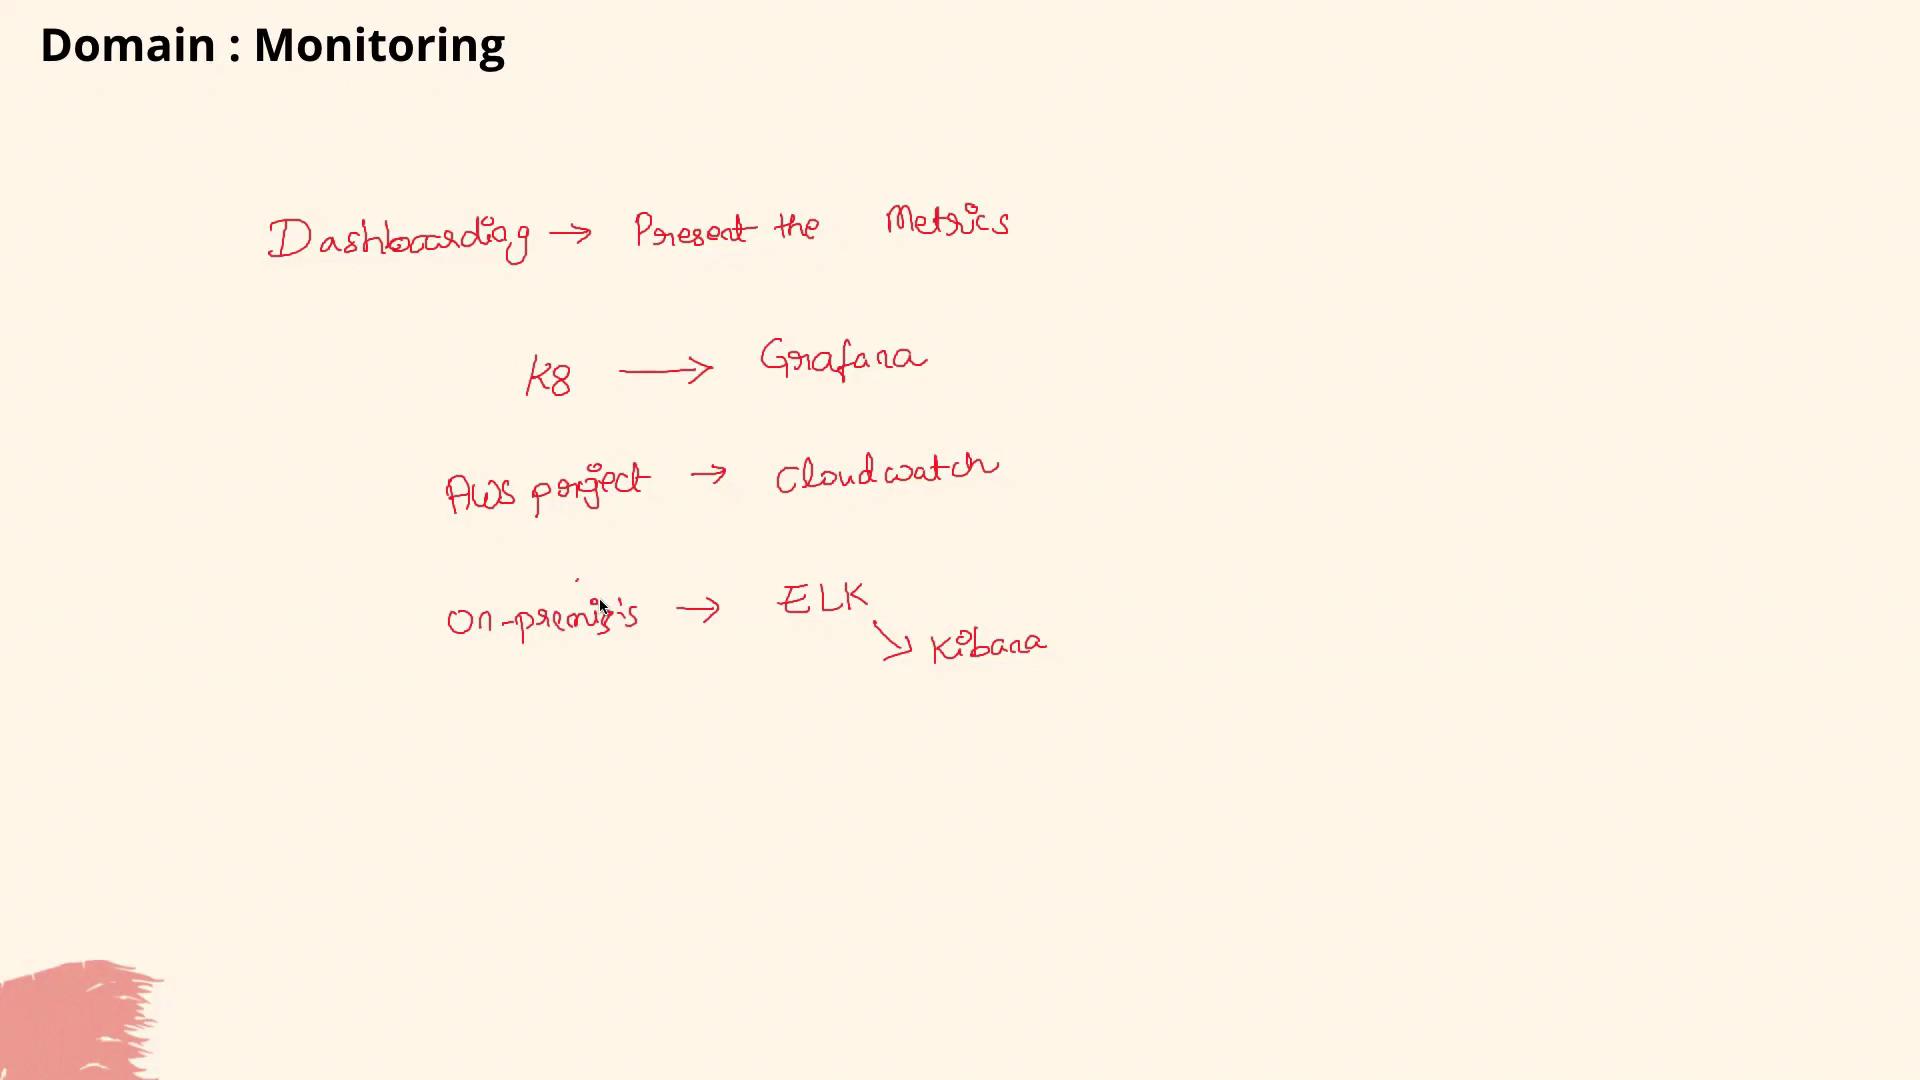 Domain : Monitoring
Dashboarding → Present the Metrics
K8 → Grafana
AWS porject → Cloudwatch
On-premisis → ELK
↘ Kibana